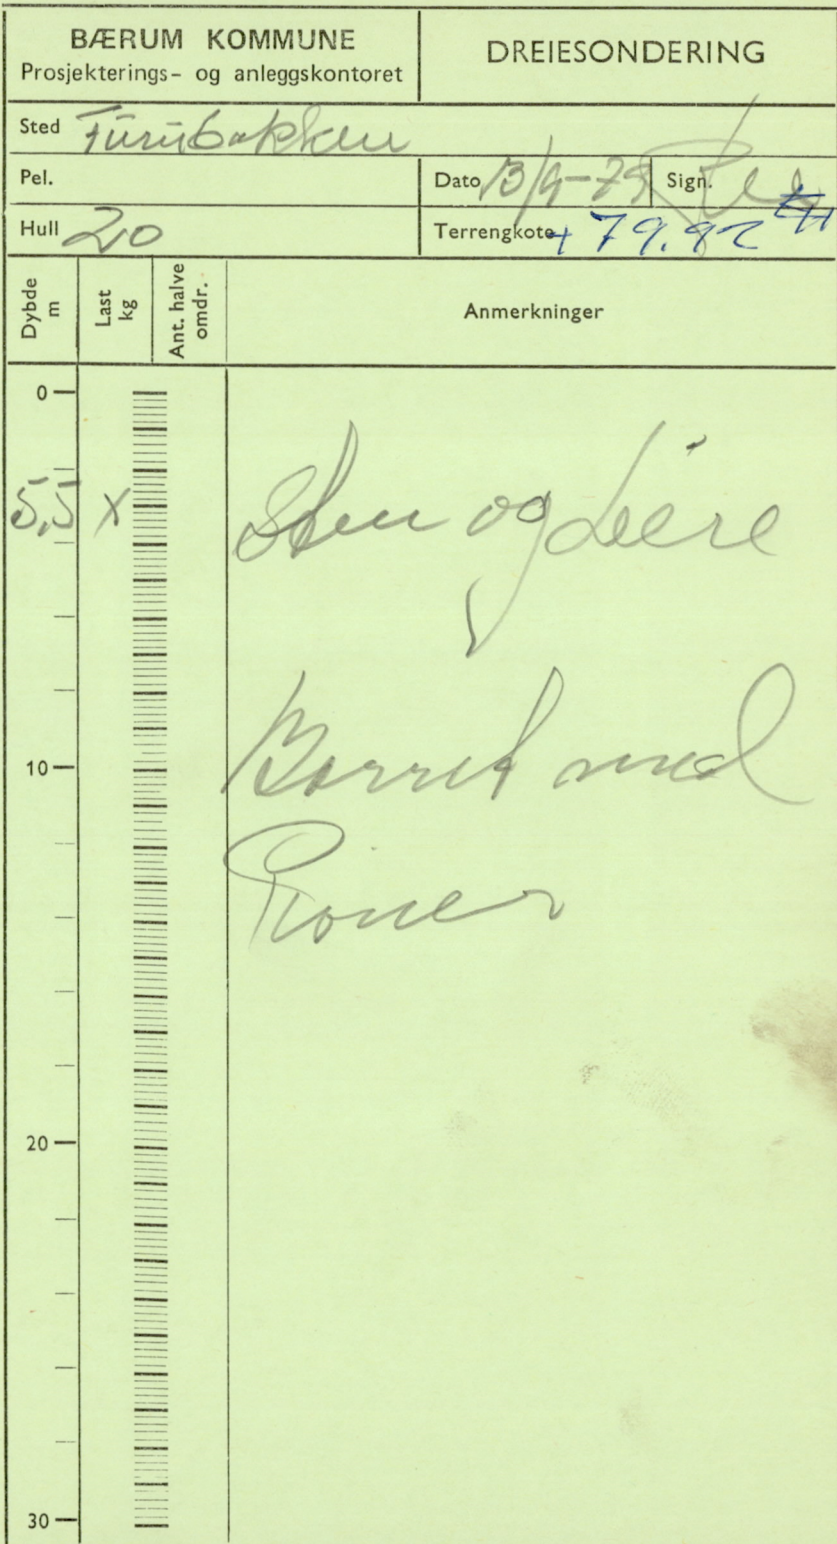 BÆRUM KOMMUNE
Prosjekterings- og anleggskontoret
DREIESONDERING
Sted Furubakken
Pel.
Dato 13/9-79 Sign.
Hull 20
Terrengkote +79.92 EH
Dybde m
Last kg
Ant. halve omdr.
Anmerkninger
0
5,5 x Sten og Leire
10 Borret med
Kroner
20
30